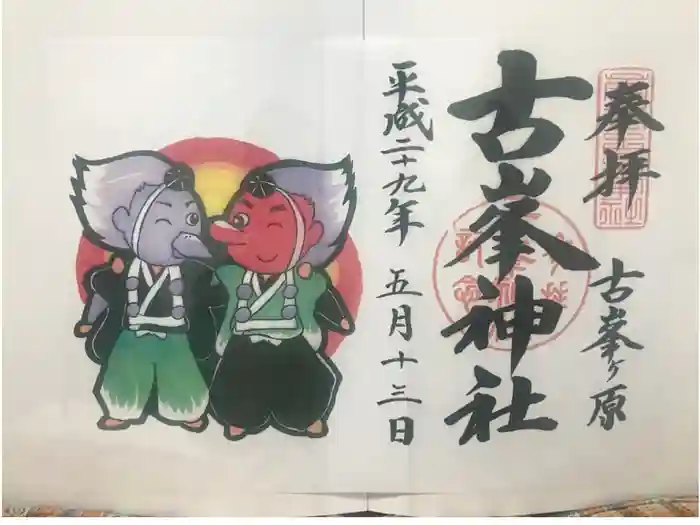 奉拝
古峯ヶ原
古峯神社
平成二十九年 五月十三日